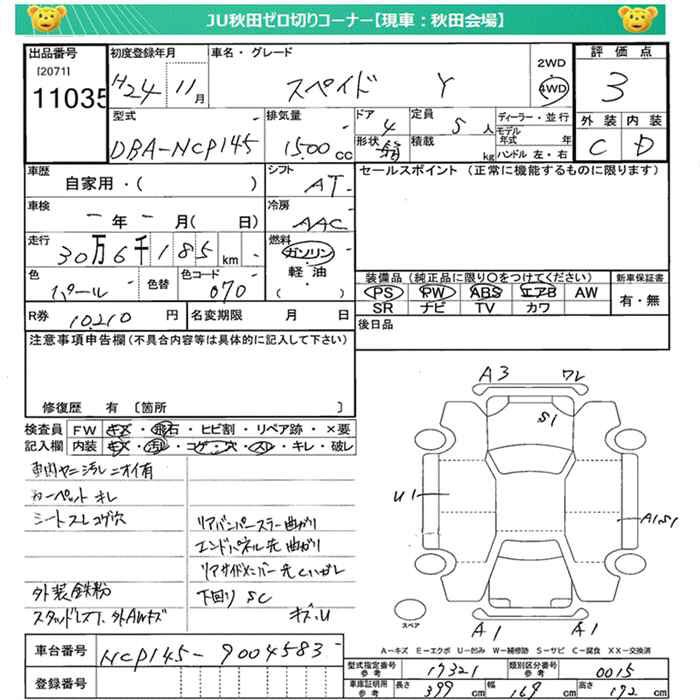 JU秋田ゼロ切りコーナー【現車：秋田会場】
出品番号
[2071]
11035
初度登録年月
H24 11月
車名・グレード
スペイド Y
2WD
・
4WD
評価点
3
外装 内装
C D
型式
DBA-NCP145
排気量
1500 cc
ドア
4
形状
定員
5 人
積載
kg
ディーラー・並行
モデル年式 年
ハンドル 左・右
車歴
自家用・( )
シフト
AT
セールスポイント (正常に機能するものに限ります)
車検
- 年 - 月( 日)
冷房
AAC
走行
30万6千185 km
燃料
ガソリン
・
軽・油
( )
色
パール
色替
色コード
070
装備品 (純正品に限り○をつけてください)
PS PW ABS エアB AW
SR ナビ TV カワ
新車保証書
有・無
R券
10,210 円
名変期限 月 日
後日品
注意事項申告欄(不具合内容等は具体的に記入して下さい)
修復歴 有 〔箇所 〕
検査員記入欄
FW キズ・飛石・ヒビ割・リペア跡・×要
内装 キズ・汚レ・コゲ・穴・スレ・キレ・破レ
車内ヤニ汚レ ニオイ有
カーペット キレ
シートスレ コゲ穴
リアバンパーステー曲がり
エンドパネル先 曲がり
外装鉄粉
下回り SC
スタッドレス7、外AWキズ
キズ・U
A3 ワレ
S1
U1
A1S1
スペア
A1 A1
A−キズ E−エクボ U−凹み W−補修跡 S−サビ C−腐食 XX−交換済
車台番号
NCP145-9004583
登録番号
型式指定番号
参考
17321
類別区分番号
参考
0015
車庫証明用
参考
長さ 399 cm 幅 169 cm 高さ 172 cm